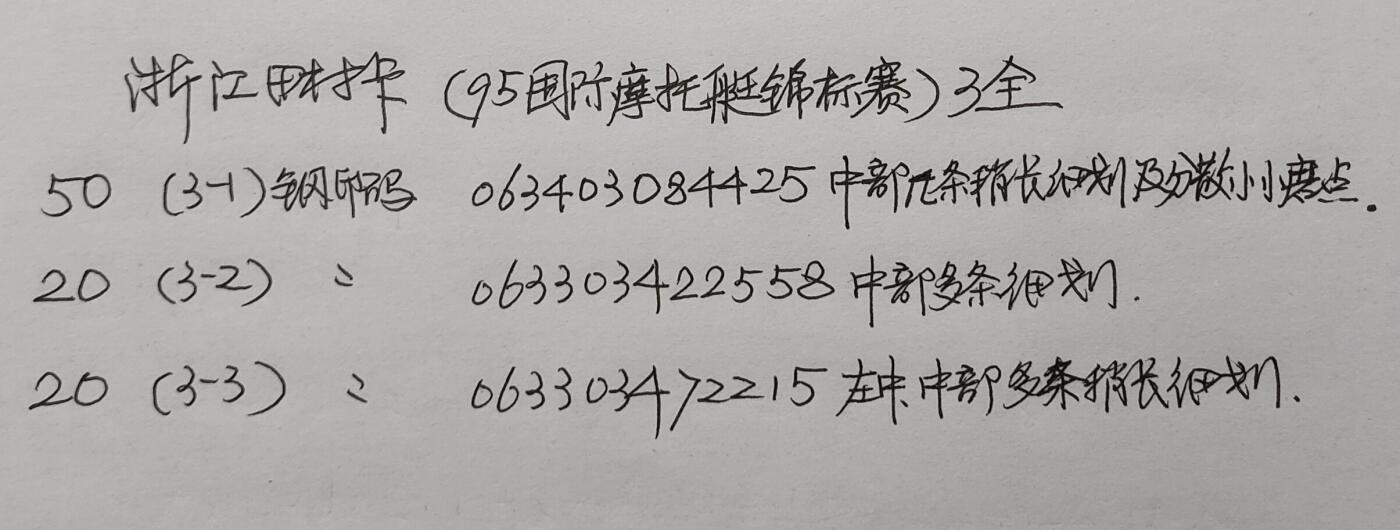 浙江田村卡 (95国际摩托艇锦标赛) 3全
50 (3-1) 钢印码 063403084425 中部几条稍长细划及分散小小磨点.
20 (3-2) 〃 063303422558 中部多条细划.
20 (3-3) 〃 063303472215 左中.中部多条稍长细划.